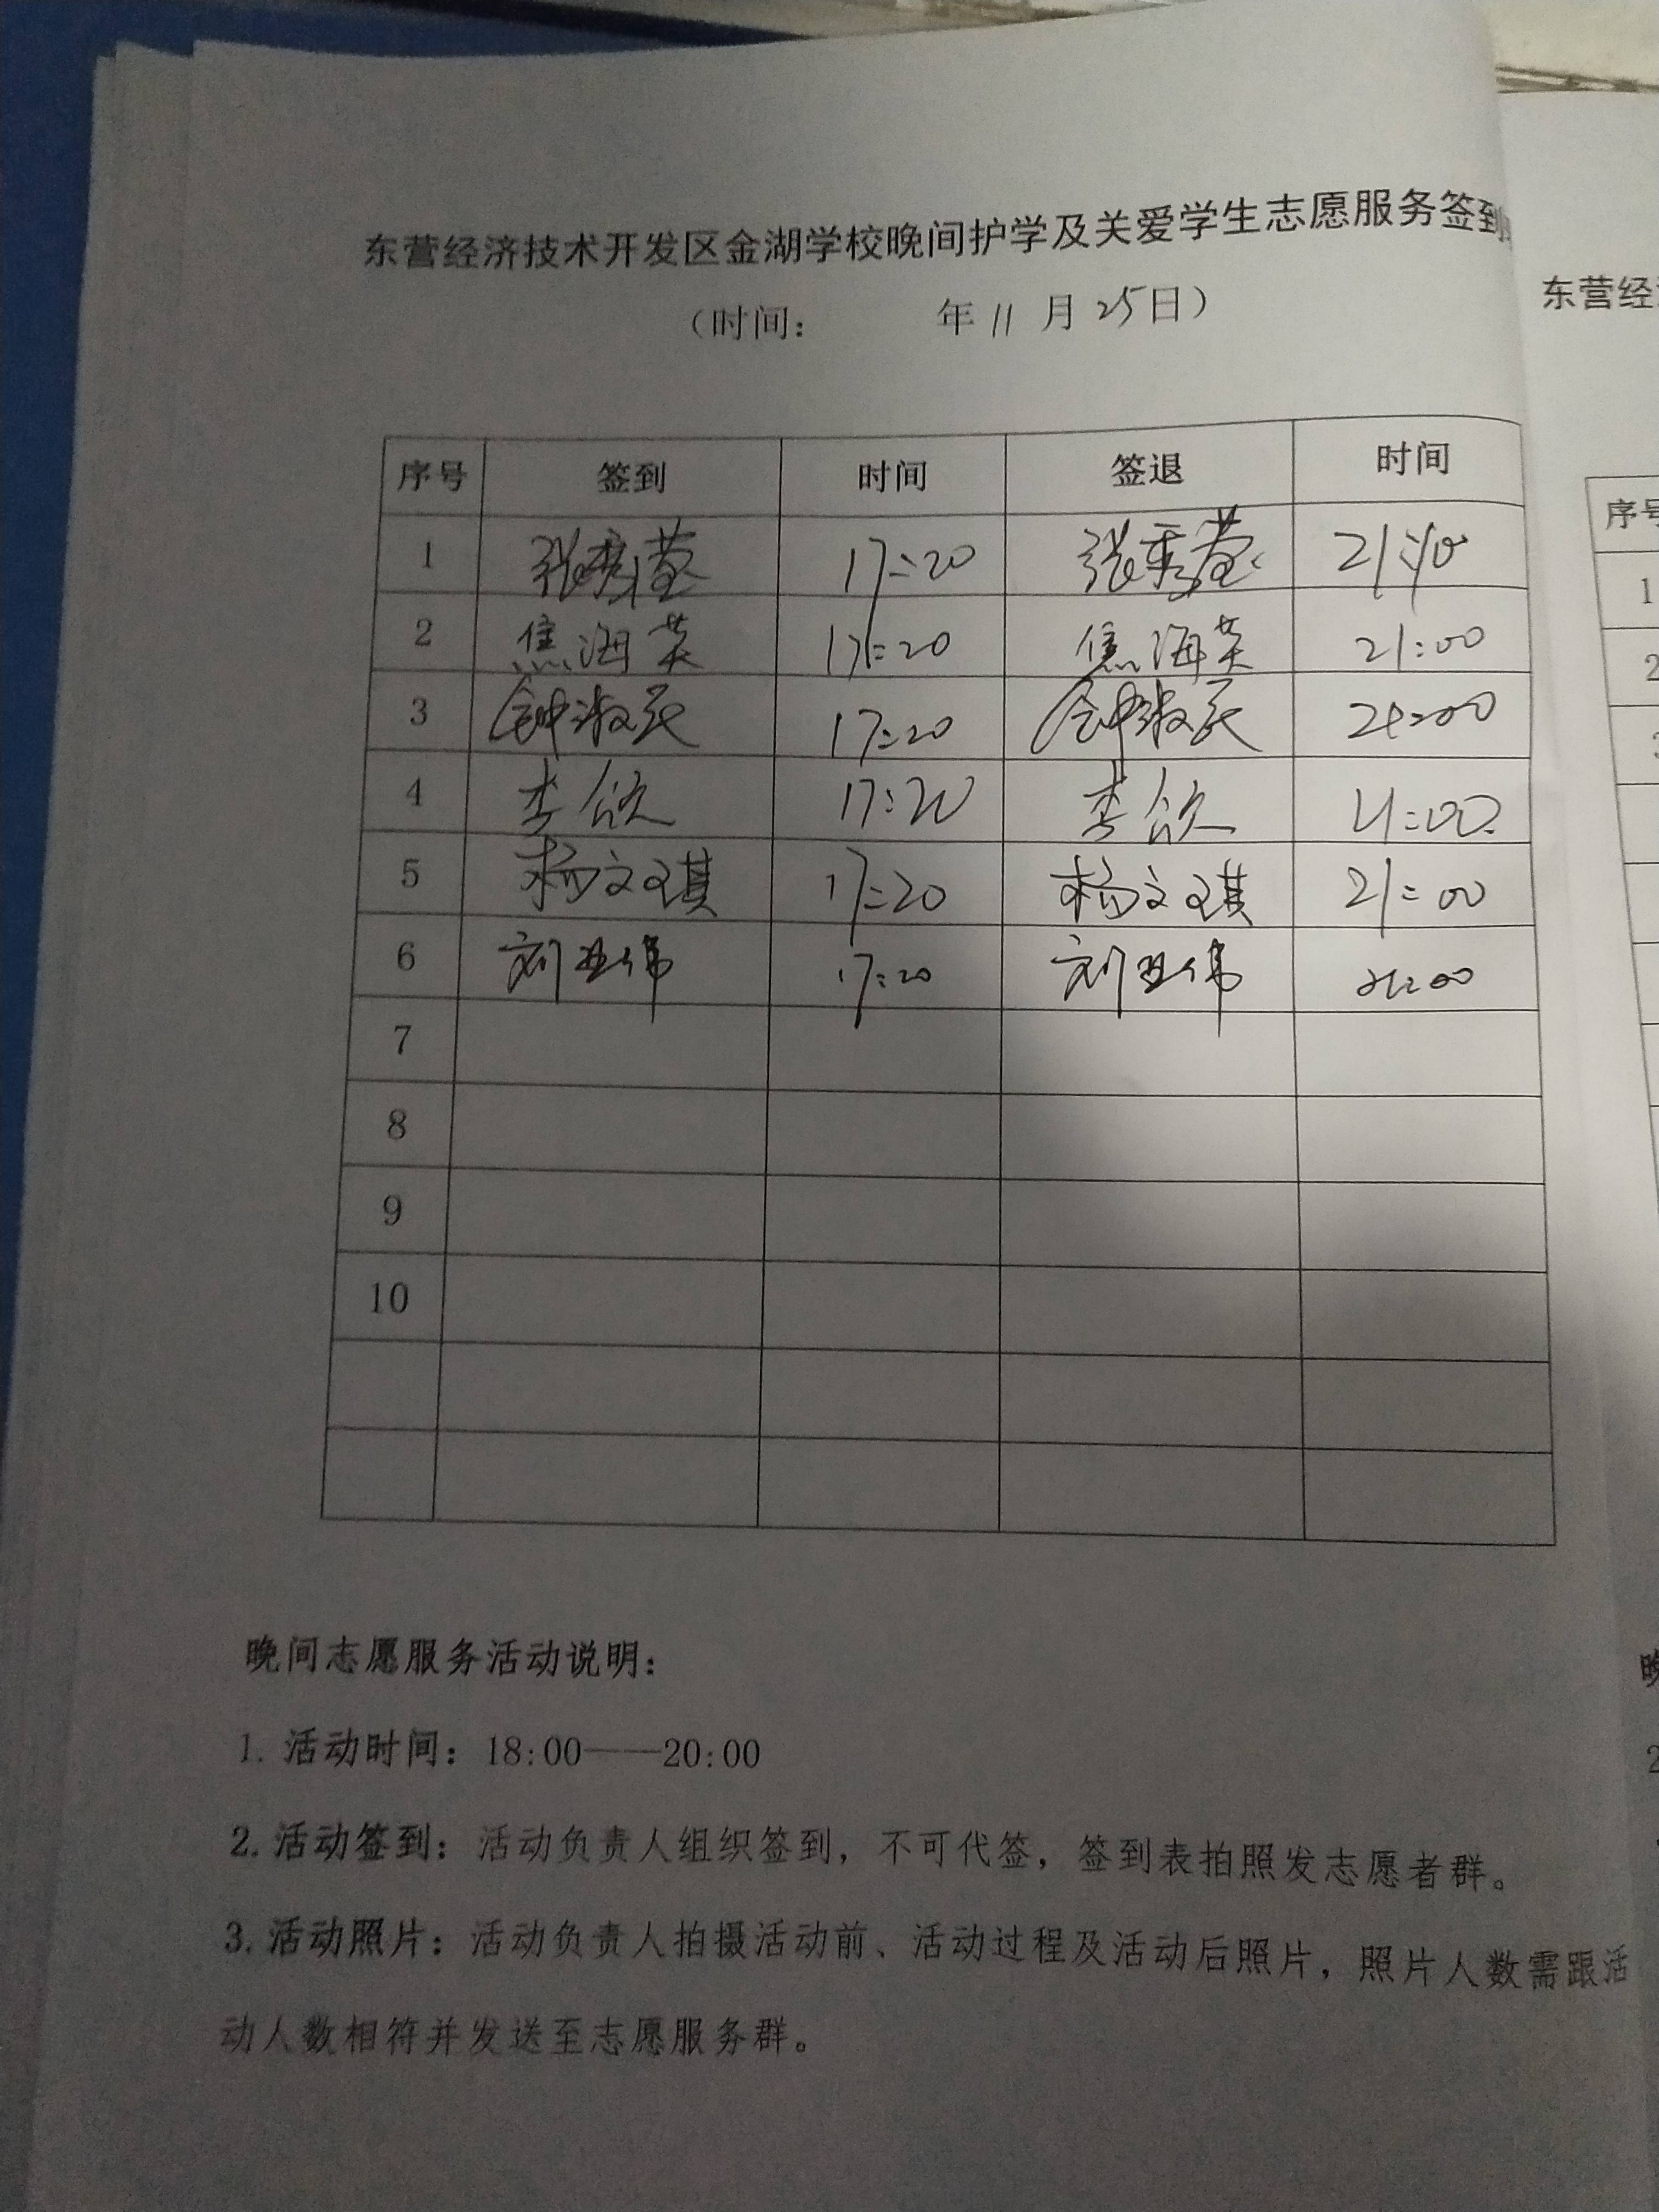 东营经济技术开发区金湖学校晚间护学及关爱学生志愿服务签到
（时间： 年 11 月 25日）
序号 签到 时间 签退 时间
1 张秀莹 17:20 张秀莹 21:10
2 焦海英 17:20 焦海英 21:00
3 钟淑民 17:20 钟淑民 21:00
4 李欣 17:20 李欣 21:00
5 杨文琪 17:20 杨文琪 21:00
6 刘亚伟 17:20 刘亚伟 21:00
7
8
9
10
晚间志愿服务活动说明：
1. 活动时间：18:00——20:00
2. 活动签到：活动负责人组织签到，不可代签，签到表拍照发志愿者群。
3. 活动照片：活动负责人拍摄活动前、活动过程及活动后照片，照片人数需跟活
动人数相符并发送至志愿服务群。
东营经
序号
1
2
晚
2